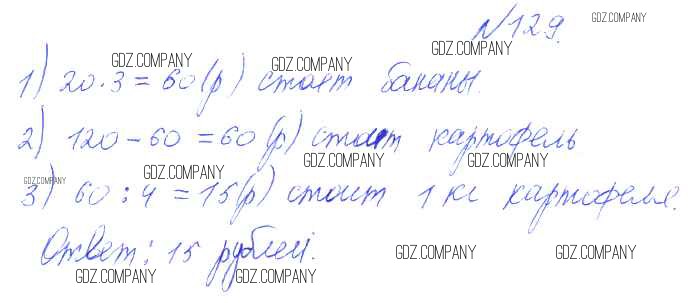 №129.
GDZ.COMPANY
GDZ.COMPANY GDZ.COMPANY GDZ.COMPANY
1) 20·3=60(р) стоят бананы.
2) 120-60=60(р) стоит картофель
GDZ.COMPANY GDZ.COMPANY GDZ.COMPANY
GDZ.COMPANY
3) 60:4=15(р) стоит 1 кг картофеля.
Ответ: 15 рублей.
GDZ.COMPANY GDZ.COMPANY
GDZ.COMPANY GDZ.COMPANY